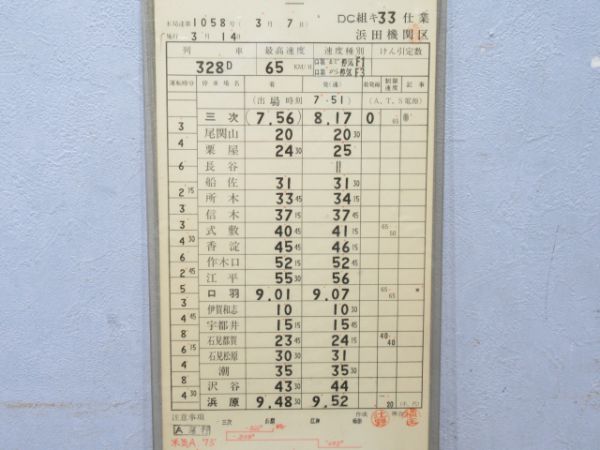 本局達第1058号(3月7日) DC組キ33仕業
施行 3月14日 浜田機関区
列車 最高速度 速度種別 けん引定数
328D 65KM/H 口羽まで 停気F1
口羽から 停気F3
運転時分 停車場名 着 発(通) 着発線 制限速度 記事
(出場時刻 7.51) (A.T.S電源)
三次 (7.56) 8.17 0 65
3 尾関山 20 20 30
4 粟屋 24 30 25
長谷 ||
6 船佐 31 31 30
2 15 所木 33 45 34 15
3 信木 37 15 37 45
3 式敷 40 45 41 15 65 50
4 30 香淀 45 45 46 15
6 作木口 52 15 52 45
2 45 江平 55 30 56
5 口羽 9.01 9.07 65 65 *
3 伊賀和志 10 10 30
4 45 宇都井 15 15 15 45
8 石見都賀 23 45 24 15 40 40
6 15 石見松原 30 30 31
4 潮 35 35 30
8 沢谷 43 30 44
4 30 浜原 9.48 30 9.52 20
注意事項 三次 口羽 江津 浜田 作成
A
米気A 75